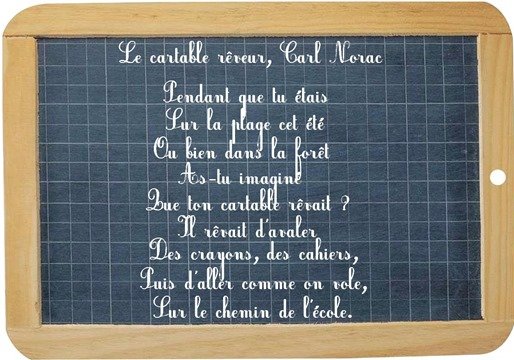 Le cartable rêveur, Carl Norac
Pendant que tu étais
Sur la plage cet été
Ou bien dans la forêt
As-tu imaginé
Que ton cartable rêvait ?
Il rêvait d'avaler
Des crayons, des cahiers,
Puis d'aller comme on vole,
Sur le chemin de l'école.